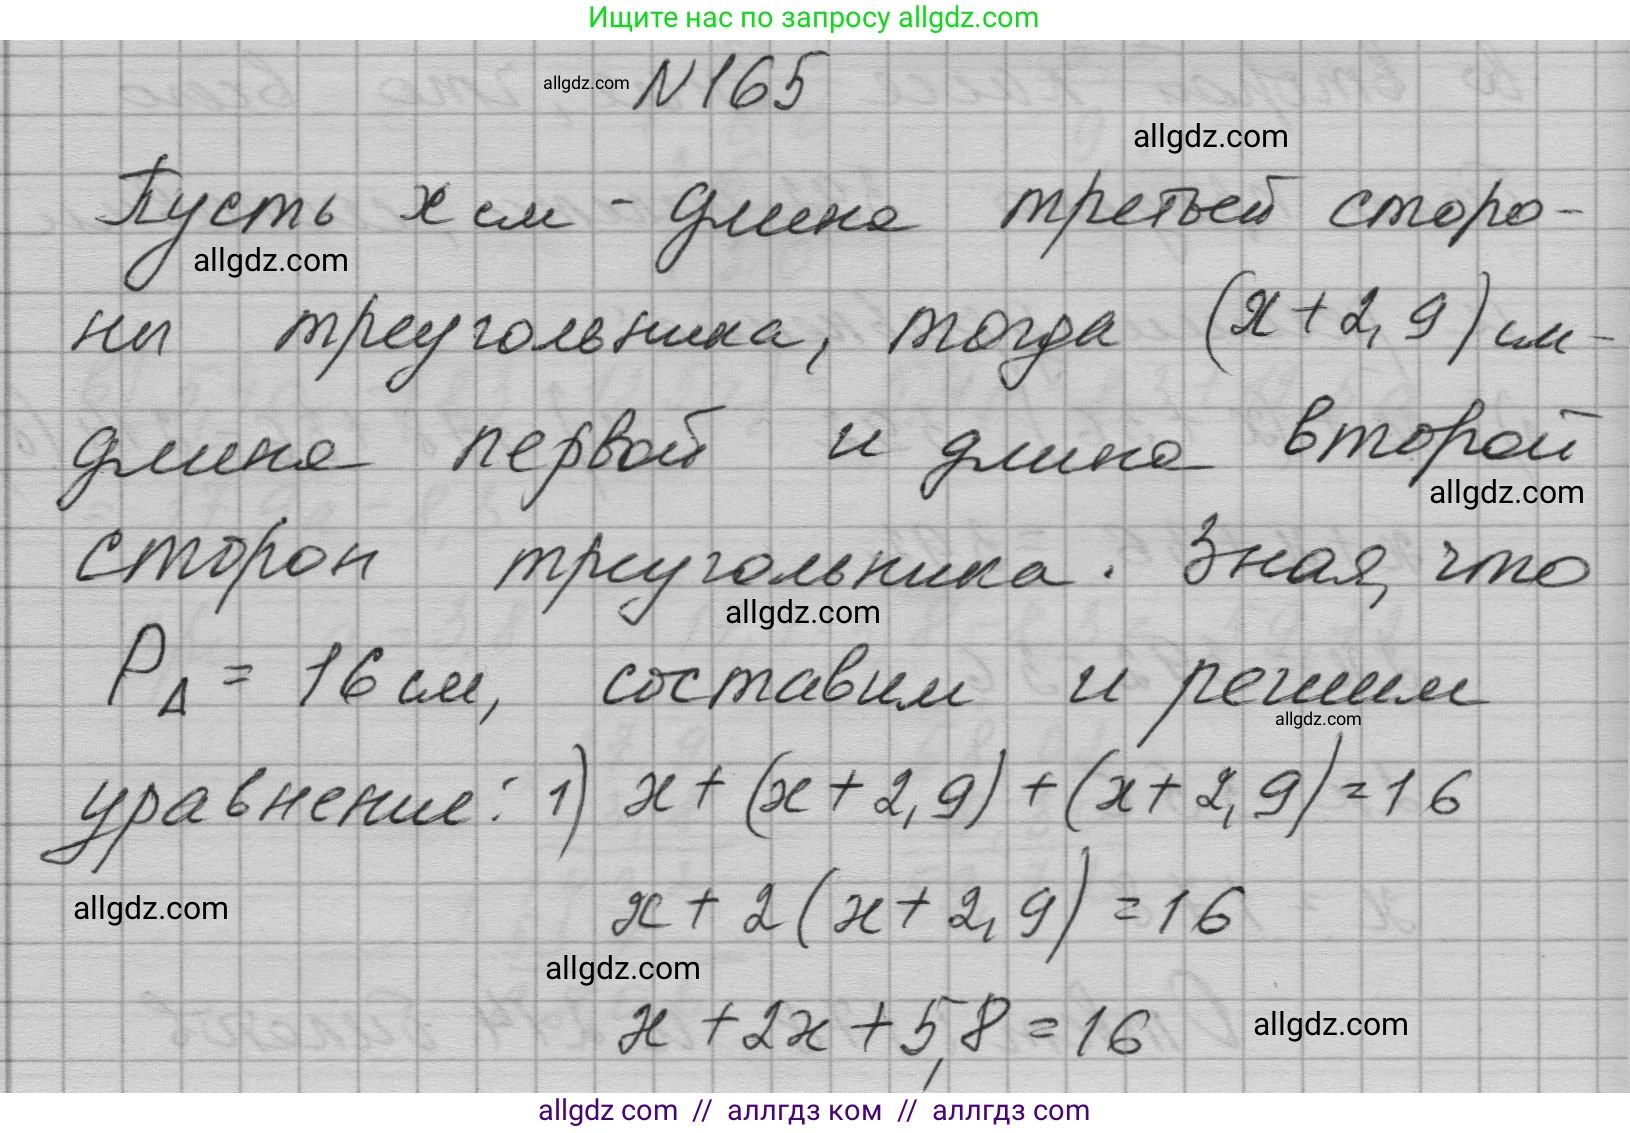 Ищите нас по запросу allgdz.com
allgdz.com N165
allgdz.com
Пусть x см - длина третьей сторо-
allgdz.com
ны треугольника, тогда (x+2,9) см-
длина первой и длина второй
allgdz.com
сторон треугольника. Зная, что
allgdz.com
PΔ = 16 см, составим и решим
allgdz.com
уравнение: 1) x+(x+2,9)+(x+2,9)=16
allgdz.com
x+2(x+2,9)=16
allgdz.com
x+2x+5,8=16
allgdz.com
allgdz com // аллгдз ком // аллгдз com